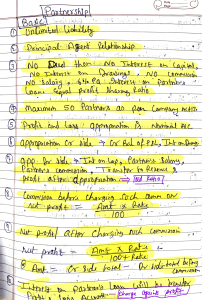 Partnership
Basics
① Unlimited Liability
② Principal Agent Relationship
③ No Deed then No Interest on Capital,
No Interest on Drawings, No Commission
No Salary, 6% PA Interest on Partners
Loan, equal profit sharing Ratio
④ Maximum 50 Partners as per Company
⑤ Profit and Loss Appropriation is Nominal A/c
⑥ Appropriation Cr side → Int on
⑦ App Dr side → Int on Cap, Partners Salary,
Partners Commission, Transfer to Reserve &
profit after appropriation →
⑧ Commission before charging such comm on
net profit = Amt × Rate
100
Net profit after charging such commission
Net profit = Amt × Rate
100 + Rate
Amt = Cr side total − Dr side total before
commission
Interest on Partners Loan will be
Partner's Loan Account